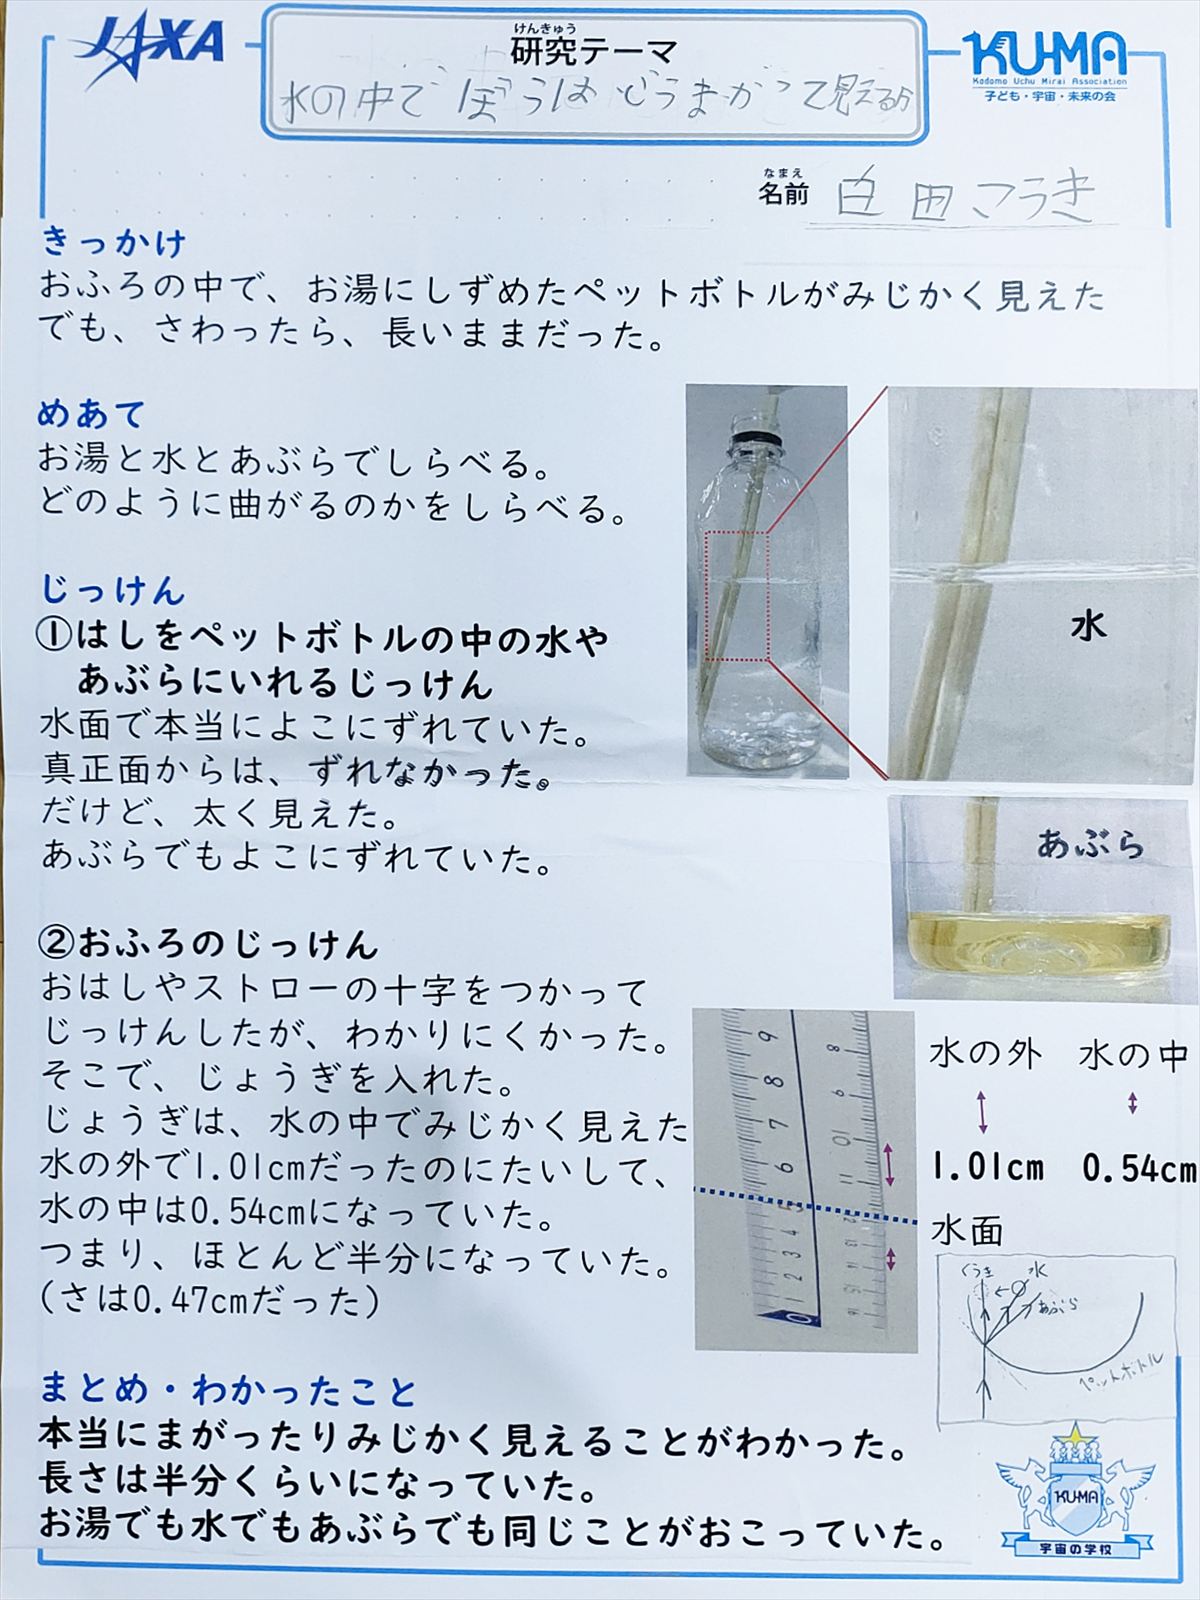 JAXA
けんきゅう
研究テーマ
水の中でぼうはどうまがって見えるか
KU-MA
Kodomo Uchu Mirai Association
子ども・宇宙・未来の会
なまえ
名前 白田こうき
きっかけ
おふろの中で、お湯にしずめたペットボトルがみじかく見えた
でも、さわったら、長いままだった。
めあて
お湯と水とあぶらでしらべる。
どのように曲がるのかをしらべる。
じっけん
①はしをペットボトルの中の水や
あぶらにいれるじっけん
水面で本当によこにずれていた。
真正面からは、ずれなかった。
だけど、太く見えた。
あぶらでもよこにずれていた。
水
あぶら
②おふろのじっけん
おはしやストローの十字をつかって
じっけんしたが、わかりにくかった。
そこで、じょうぎを入れた。
じょうぎは、水の中でみじかく見えた
水の外で1.01cmだったのにたいして、
水の中は0.54cmになっていた。
つまり、ほとんど半分になっていた。
(さは0.47cmだった)
9 8 7 6 5 4 3 2 1 0
8 9 10 11 12 13 14 15 16
水の外 水の中
1.01cm 0.54cm
水面
くうき 水
あぶら
ペットボトル
まとめ・わかったこと
本当にまがったりみじかく見えることがわかった。
長さは半分くらいになっていた。
お湯でも水でもあぶらでも同じことがおこっていた。
KU-MA
宇宙の学校